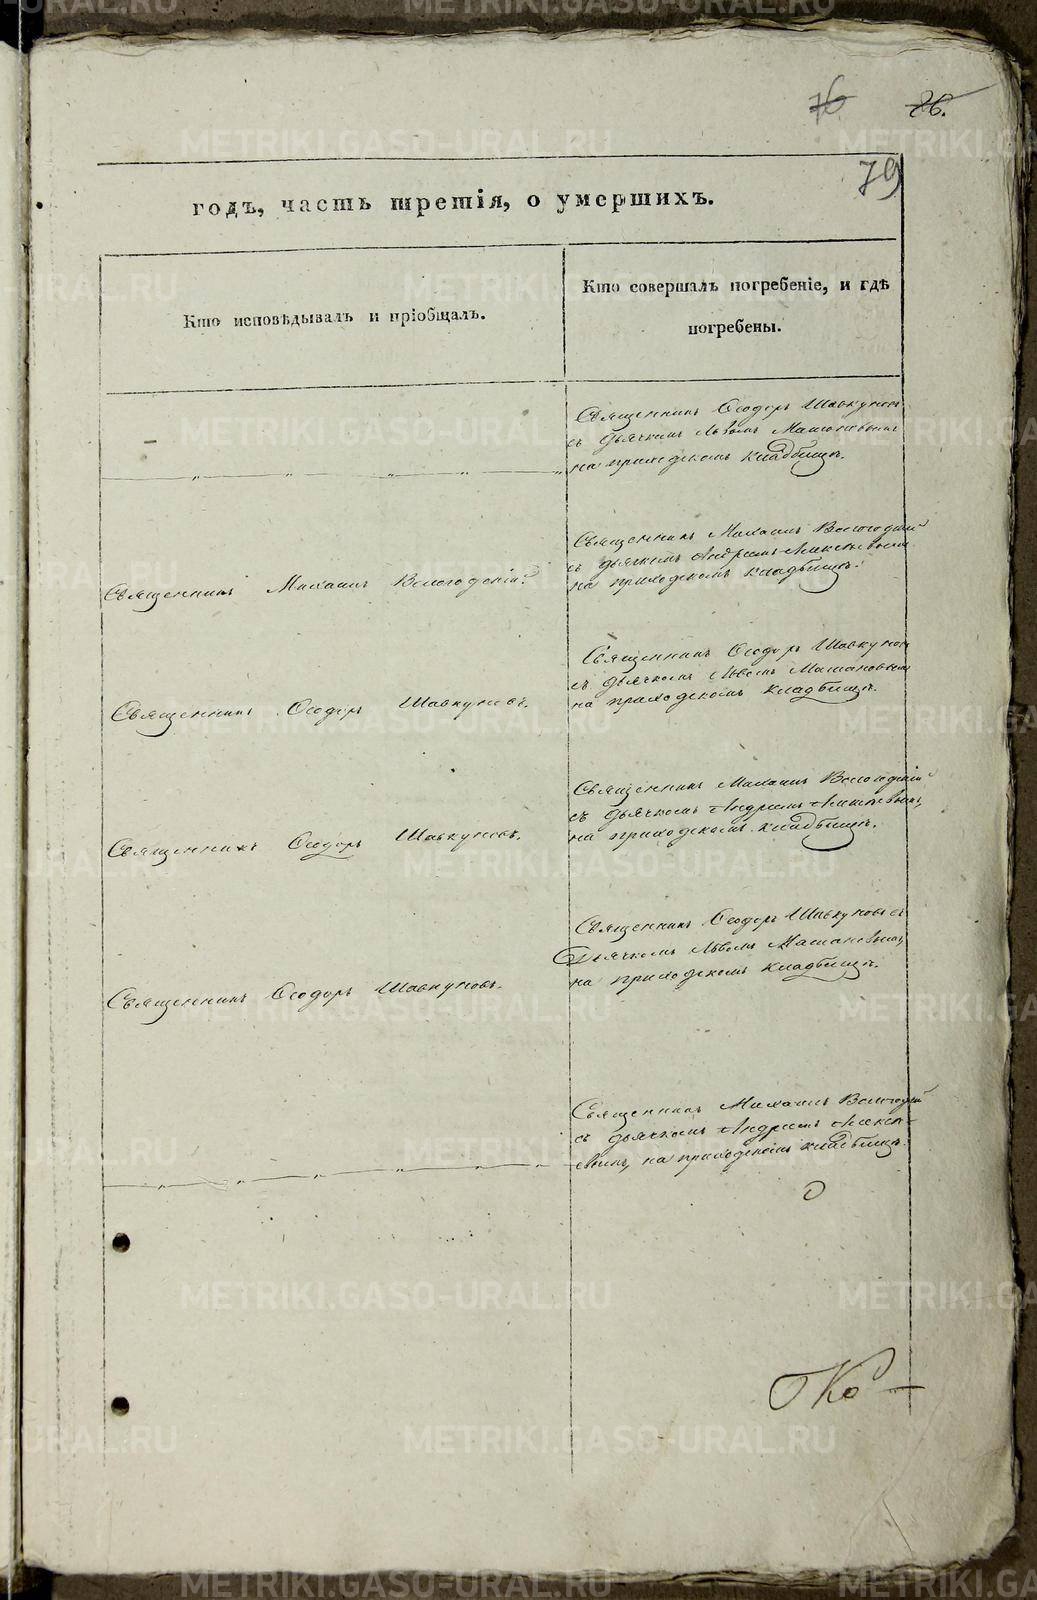 76
86.
79
годъ, часть третія, о умершихъ.
Кто исповѣдывалъ и пріобщалъ.
Кто совершалъ погребеніе, и гдѣ
погребены.
Священникъ Ѳеодоръ Шавкуновъ
съ дьячкомъ Львомъ
на приходскомъ кладбищѣ.
Священникъ Михаилъ Вологодскій
Священникъ Михаилъ Вологодскій
съ дьячкомъ Андреемъ Алексѣевымъ
на приходскомъ кладбищѣ.
Священникъ Ѳеодоръ Шавкуновъ.
Священникъ Ѳеодоръ Шавкуновъ
съ дьячкомъ Львомъ
на приходскомъ кладбищѣ.
Священникъ Ѳеодоръ Шавкуновъ.
Священникъ Михаилъ Вологодскій
съ дьячкомъ Андреемъ Алексѣевымъ,
на приходскомъ кладбищѣ.
Священникъ Ѳеодоръ Шавкуновъ.
Священникъ Ѳеодоръ Шавкуновъ съ
Дьячкомъ Львомъ
на приходскомъ кладбищѣ.
Священникъ Михаилъ Вологодскій
съ дьячкомъ Андреемъ Алексѣ-
евымъ, на приходскомъ кладбищѣ.
METRIKI.GASO-URAL.RU